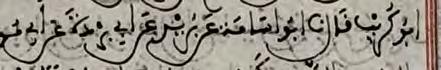 ابو كريب قال نا ابو اسامة عن بريد عن ابي بردة عن ابي مو